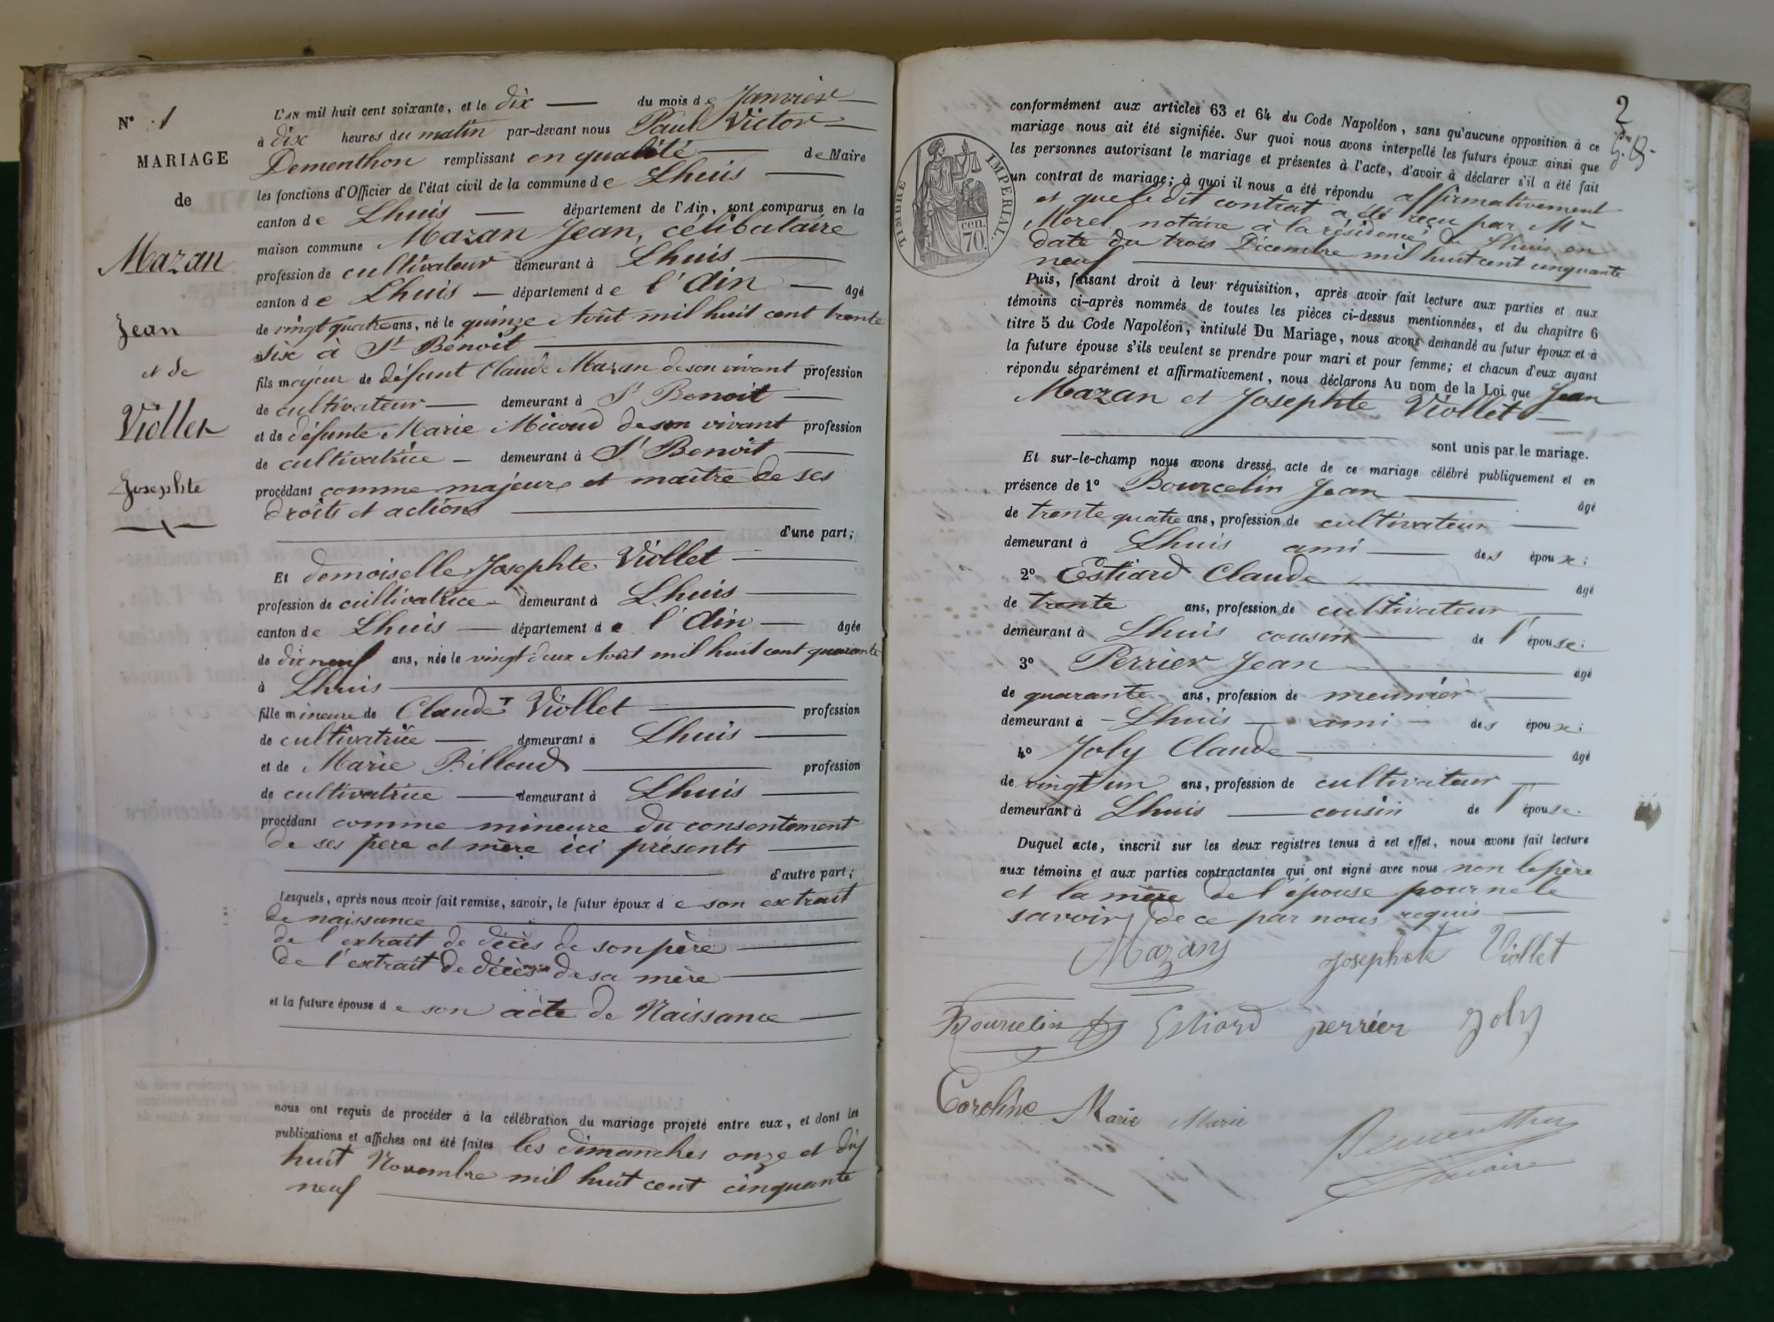 N° 1
MARIAGE
de
Mazan
Jean
et de
Viollet
Josephte
L'AN mil huit cent soixante, et le dix du mois de Janvier
à dix heures du matin par-devant nous Paul Victor
Dementhon remplissant en qualité de Maire
les fonctions d'Officier de l'état civil de la commune de Lhuis
canton de Lhuis département de l'Ain, sont comparus en la
maison commune Mazan Jean, célibataire
profession de cultivateur demeurant à Lhuis
canton de Lhuis département de l'Ain âgé
de vingt quatre ans, né le quinze Août mil huit cent trente
six à St Benoit
fils majeur de défunt Claude Mazan de son vivant profession
de cultivateur demeurant à St Benoit
et de défunte Marie Micoud de son vivant profession
de cultivatrice demeurant à St Benoit
procédant comme majeur et maître de ses
droits et actions
d'une part;
Et demoiselle Josephte Viollet
profession de cultivatrice demeurant à Lhuis
canton de Lhuis département de l'Ain âgée
de dix neuf ans, née le vingt deux Août mil huit cent quarante
à Lhuis
fille mineure de Claude Viollet profession
de cultivatrice demeurant à Lhuis
et de Marie Billoud profession
de cultivatrice demeurant à Lhuis
procédant comme mineure du consentement
de ses père et mère ici présents
d'autre part;
Lesquels, après nous avoir fait remise, savoir, le futur époux de son extrait
de naissance
de l'extrait de décès de son père
de l'extrait de décès de sa mère
et la future épouse de son acte de Naissance
nous ont requis de procéder à la célébration du mariage projeté entre eux, et dont les
publications et affiches ont été faites les dimanches onze et dix
huit Novembre mil huit cent cinquante
neuf
2
conformément aux articles 63 et 64 du Code Napoléon, sans qu'aucune opposition à ce
mariage nous ait été signifiée. Sur quoi nous avons interpellé les futurs époux ainsi que
les personnes autorisant le mariage et présentes à l'acte, d'avoir à déclarer s'il a été fait
un contrat de mariage; à quoi il nous a été répondu affirmativement
et que le dit contrat a été reçu par Me
Morel notaire à la résidence de Lhuis en
date du trois Décembre mil huit cent cinquante
neuf
TIMBRE IMPERIAL
cen. 70.
Puis, faisant droit à leur réquisition, après avoir fait lecture aux parties et aux
témoins ci-après nommés de toutes les pièces ci-dessus mentionnées, et du chapitre 6
titre 5 du Code Napoléon, intitulé Du Mariage, nous avons demandé au futur époux et à
la future épouse s'ils veulent se prendre pour mari et pour femme; et chacun d'eux ayant
répondu séparément et affirmativement, nous déclarons Au nom de la Loi que Jean
Mazan et Josephte Viollet
sont unis par le mariage.
Et sur-le-champ nous avons dressé acte de ce mariage célébré publiquement et en
présence de 1° Bourcelin Jean âgé
de trente quatre ans, profession de cultivateur
demeurant à Lhuis ami des époux;
2° Estiard Claude âgé
de trente ans, profession de cultivateur
demeurant à Lhuis cousin de l'épouse;
3° Perrier Jean âgé
de quarante ans, profession de meunier
demeurant à Lhuis ami des époux;
4° Joly Claude âgé
de vingt un ans, profession de cultivateur
demeurant à Lhuis cousin de l'épouse.
Duquel acte, inscrit sur les deux registres tenus à cet effet, nous avons fait lecture
aux témoins et aux parties contractantes qui ont signé avec nous non le père
et la mère de l'épouse pour ne le
savoir de ce par nous requis
Mazan Josephte Viollet
Bourcelin Estiard perrier Joly
Caroline Marie Marie
Dementhon
maire